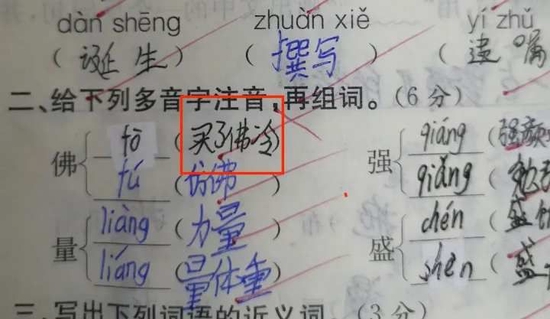 dàn shēng zhuàn xiě yí zhǔ
(诞生) (撰写) (遗嘱
二、给下列多音字注音,再组词。(6分)
佛 fō (买了佛冷) 强 qiáng (强
fú (仿佛 qiǎng (勉
量 liàng (力量 盛 chén (盛
liáng (量体重 shèn (盛
三、写出下列词语的近义词。(3分)